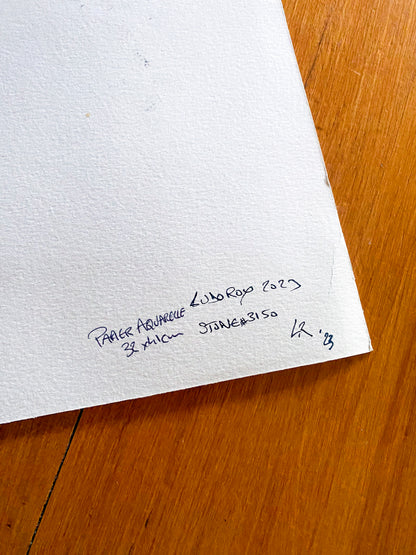 PAPIER AQUARELLE LUDO ROYO 2023
32 x 41cm STONE#3150
LR '23